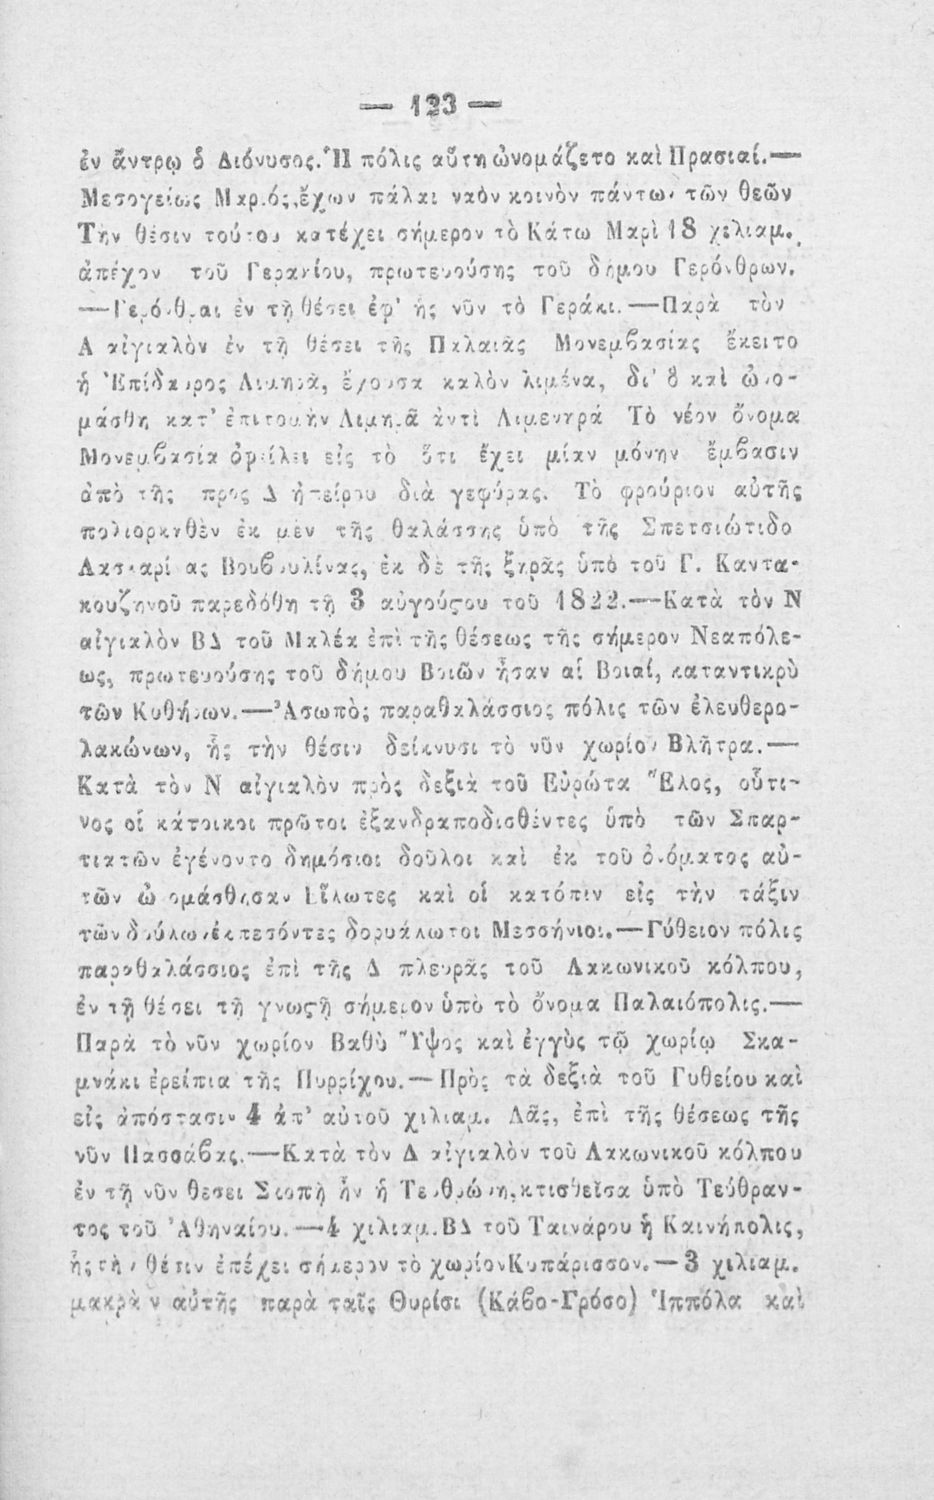 — 123 —
ἐν ἄντρῳ ὁ Διόνυσος. Ἡ πόλις αὕτη ὠνομάζετο καὶ Πρασιαί.—
Μεσογείως Μαριός, ἔχων πάλαι ναὸν κοινὸν πάντων τῶν θεῶν
Τὴν θέσιν τούτου κατέχει σήμερον τὸ Κάτω Μαρὶ 18 χιλιαμ.
ἀπέχον τοῦ Γερακίου, πρωτευούσης τοῦ δήμου Γερόνθρων.
—Γερόνθραι ἐν τῇ θέσει ἐφ' ἧς νῦν τὸ Γεράκι.—Παρὰ τὸν
Α αἰγιαλὸν ἐν τῇ θέσει τῆς Παλαιᾶς Μονεμβασίας ἔκειτο
ἡ Ἐπίδαυρος Λιμηρά, ἔχουσα καλὸν λιμένα, δι' ὃ καὶ ὠνο-
μάσθη κατ' ἐπιτομὴν Λιμηρᾶ ἀντὶ Λιμενηρά Τὸ νέον ὄνομα
Μονεμβασία ὀφείλει εἰς τὸ ὅτι ἔχει μίαν μόνην ἔμβασιν
ἀπὸ τῆς προς Δ ἠπείρου διὰ γεφύρας. Τὸ φρούριον αὐτῆς
πολιορκηθὲν ἐκ μὲν τῆς θαλάσσης ὑπὸ τῆς Σπετσιώτιδο
Λασκαρίνας Βουβουλίνας, ἐκ δὲ τῆς ξηρᾶς ὑπὸ τοῦ Γ. Καντα-
κουζηνοῦ παρεδόθη τῇ 3 αὐγούςου τοῦ 1822.—Κατὰ τὸν Ν
αἰγιαλὸν ΒΔ τοῦ Μαλέα ἐπὶ τῆς θέσεως τῆς σήμερον Νεαπόλε-
ως, πρωτευούσης τοῦ δήμου Βοιῶν ἦσαν αἱ Βοιαί, καταντικρὺ
τῶν Κυθήρων.—Ἀσωπὸς παραθαλάσσιος πόλις τῶν ἐλευθερο-
λακώνων, ἧς τὴν θέσιν δείκνυσι τὸ νῦν χωρίον Βλῆτρα.—
Κατὰ τὸν Ν αἰγιαλὸν πρὸς δεξιὰ τοῦ Εὐρώτα Ἕλος, οὗτι-
νος οἱ κάτοικοι πρῶτοι ἐξανδραποδισθέντες ὑπὸ τῶν Σπαρ-
τιατῶν ἐγένοντο δημόσιοι δοῦλοι καὶ ἐκ τοῦ ὀνόματος αὐ-
τῶν ὠνομάσθησαν Εἵλωτες καὶ οἱ κατόπιν εἰς τὴν τάξιν
τῶν δούλων ἐκπεσόντες δορυάλωτοι Μεσσήνιοι.—Γύθειον πόλις
παραθαλάσσιος ἐπὶ τῆς Δ πλευρᾶς τοῦ Λακωνικοῦ κόλπου,
ἐν τῇ θέσει τῇ γνωςῇ σήμερον ὑπὸ τὸ ὄνομα Παλαιόπολις.—
Παρὰ τὸ νῦν χωρίον Βαθὺ Ὕψος καὶ ἐγγὺς τῷ χωρίῳ Σκα-
μνάκι ἐρείπια τῆς Πυρρίχου.—Πρὸς τὰ δεξιὰ τοῦ Γυθείου καὶ
εἰς ἀπόστασιν 4 ἀπ' αὐτοῦ χιλιαμ. Λᾶς, ἐπὶ τῆς θέσεως τῆς
νῦν Πασσάβας.—Κατὰ τὸν Δ αἰγιαλὸν τοῦ Λακωνικοῦ κόλπου
ἐν τῇ νῦν θεσει Σκοπῇ ἦν ἡ Τευθρώνη, κτισθεῖσα ὑπὸ Τεύθραν-
τος τοῦ Ἀθηναίου.—4 χιλιαμ. ΒΔ τοῦ Ταινάρου ἡ Καινήπολις,
ἧς τὴν θέσιν ἐπέχει σήμερον τὸ χωρίον Κυπάρισσον.—3 χιλιαμ.
μακρὰν αὐτῆς παρὰ ταῖς Θυρίσι (Κάβο-Γρόσο) Ἱππόλα καὶ